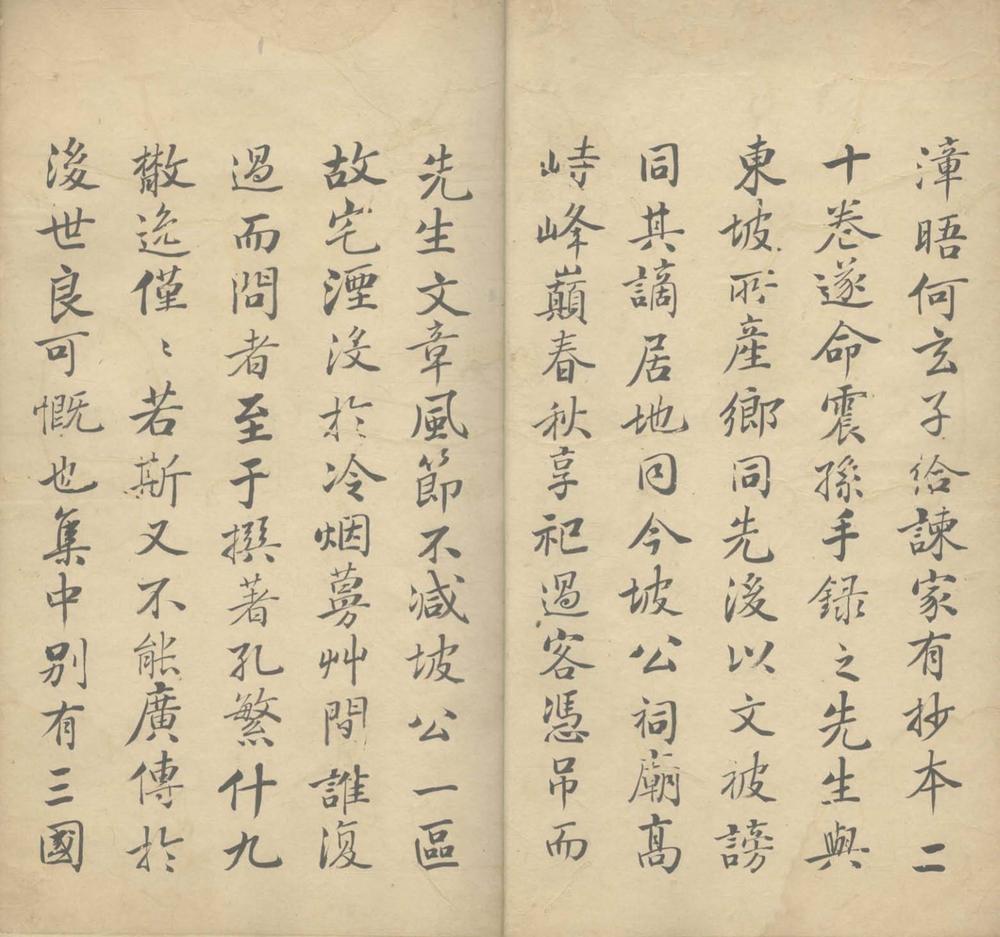 漳晤何玄子給諫家有抄本二
十卷遂命震孫手録之先生與
東坡所產鄉同先後以文被謗
同其謫居地同今坡公祠廟高
峙峰巔春秋享祀過客憑吊而
先生文章風節不減坡公一區
故宅湮沒於冷烟蔓艸間誰復
過而問者至于撰著孔繁什九
散逸僅〻若斯又不能廣傳於
後世良可慨也集中別有三國